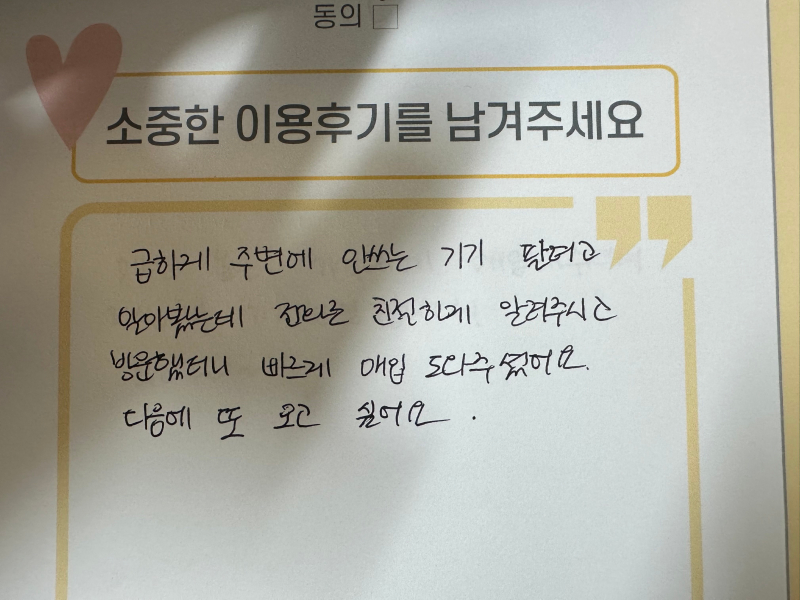 동의 □
소중한 이용후기를 남겨주세요
급하게 주변에 안쓰는 기기 팔려고
알아봤는데 전화로 친절하게 알려주시고
방문했더니 빠르게 매입 도와주셨어요.
다음에 또 오고 싶어요.